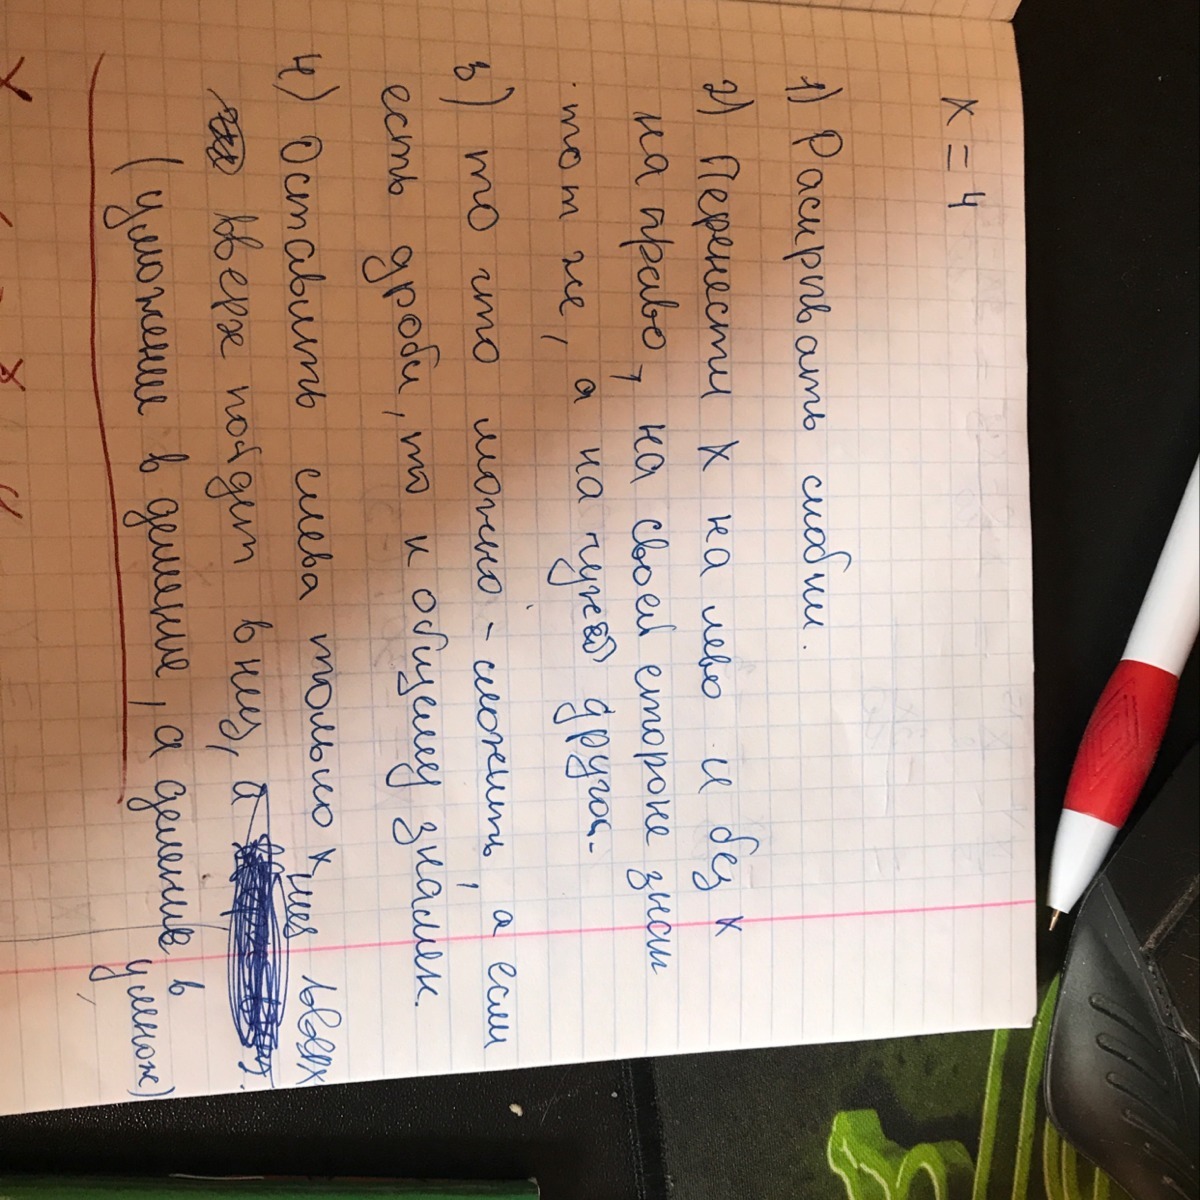 x = 4
1) Раскрывать скобки.
2) Перенести x на лево и без x
на право, на своей стороне знак
тот же, а на чужой другой.
3) то что можно - сложить, а если
есть дроби, то к общему знамен.
4) Оставить слева только x
вверх пойдет в низ, а
(умножении в деление, а деление в
умнож)